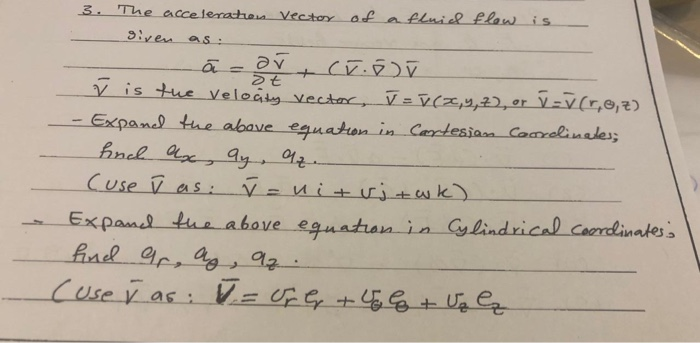 3. The acceleration vector of a fluid flow is
given as:
ā = ∂V̄/∂t + (V̄.∇̄)V̄
V̄ is the velocity vector, V̄ = V̄(x,y,z), or V̄ = V̄(r,θ,z)
- Expand the above equation in Cartesian Coordinates;
find ax, ay, az.
(use V̄ as: V̄ = ui + vj + wk)
- Expand the above equation in Cylindrical Coordinates;
find ar, aθ, az.
(use V̄ as: V̄ = vr er + vθ eθ + vz ez